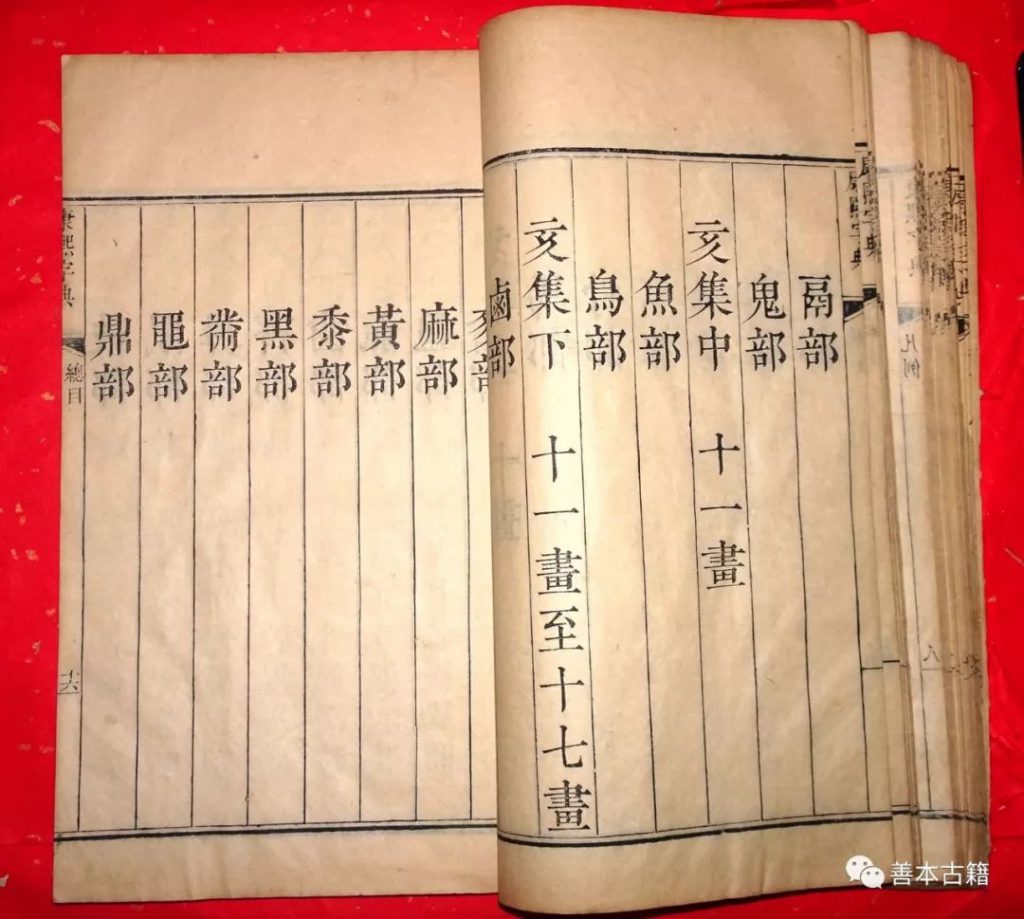 鬲部
鬼部
亥集中 十一畫
魚部
鳥部
亥集下 十一畫至十七畫
鹵部
麻部
黃部
黍部
黑部
黹部
黽部
鼎部
康熙字典 總目 十六
康熙字典
凡例
八
善本古籍